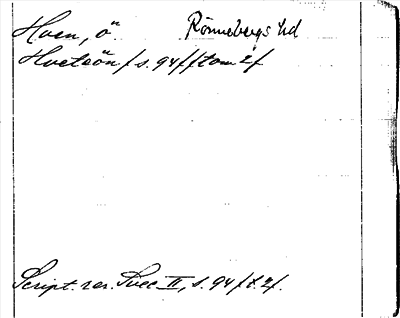 Hven, ö. Rönnebergs hd
Hvetsön /s. 94/ /tom 2/
Script. rer. Svec II, s. 94 /t. 2/.